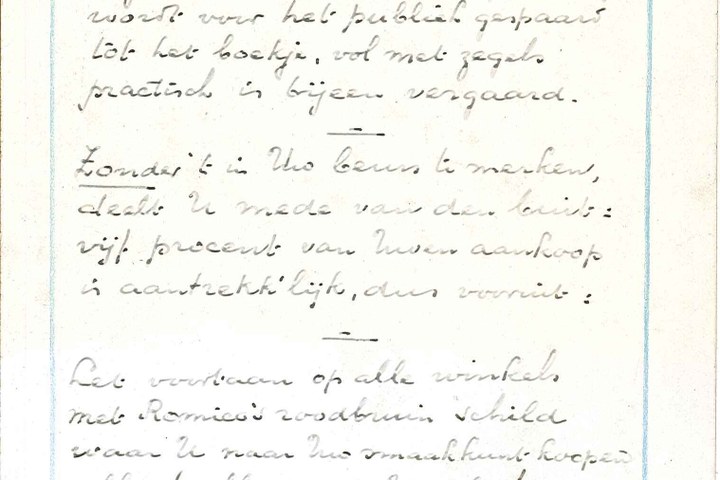 wordt voor het publiek gespaard
tot het boekje, vol met zegels
practisch is bijeen vergaard.
Zonder 't in Uw beurs te merken,
deelt U mede van den buit:
vijf procent van Uwen aankoop
is aantrekk'lijk, dus vooruit:
Let voortaan op alle winkels
met Romico's roodbruin schild
waar U naar Uw smaak kunt koopen